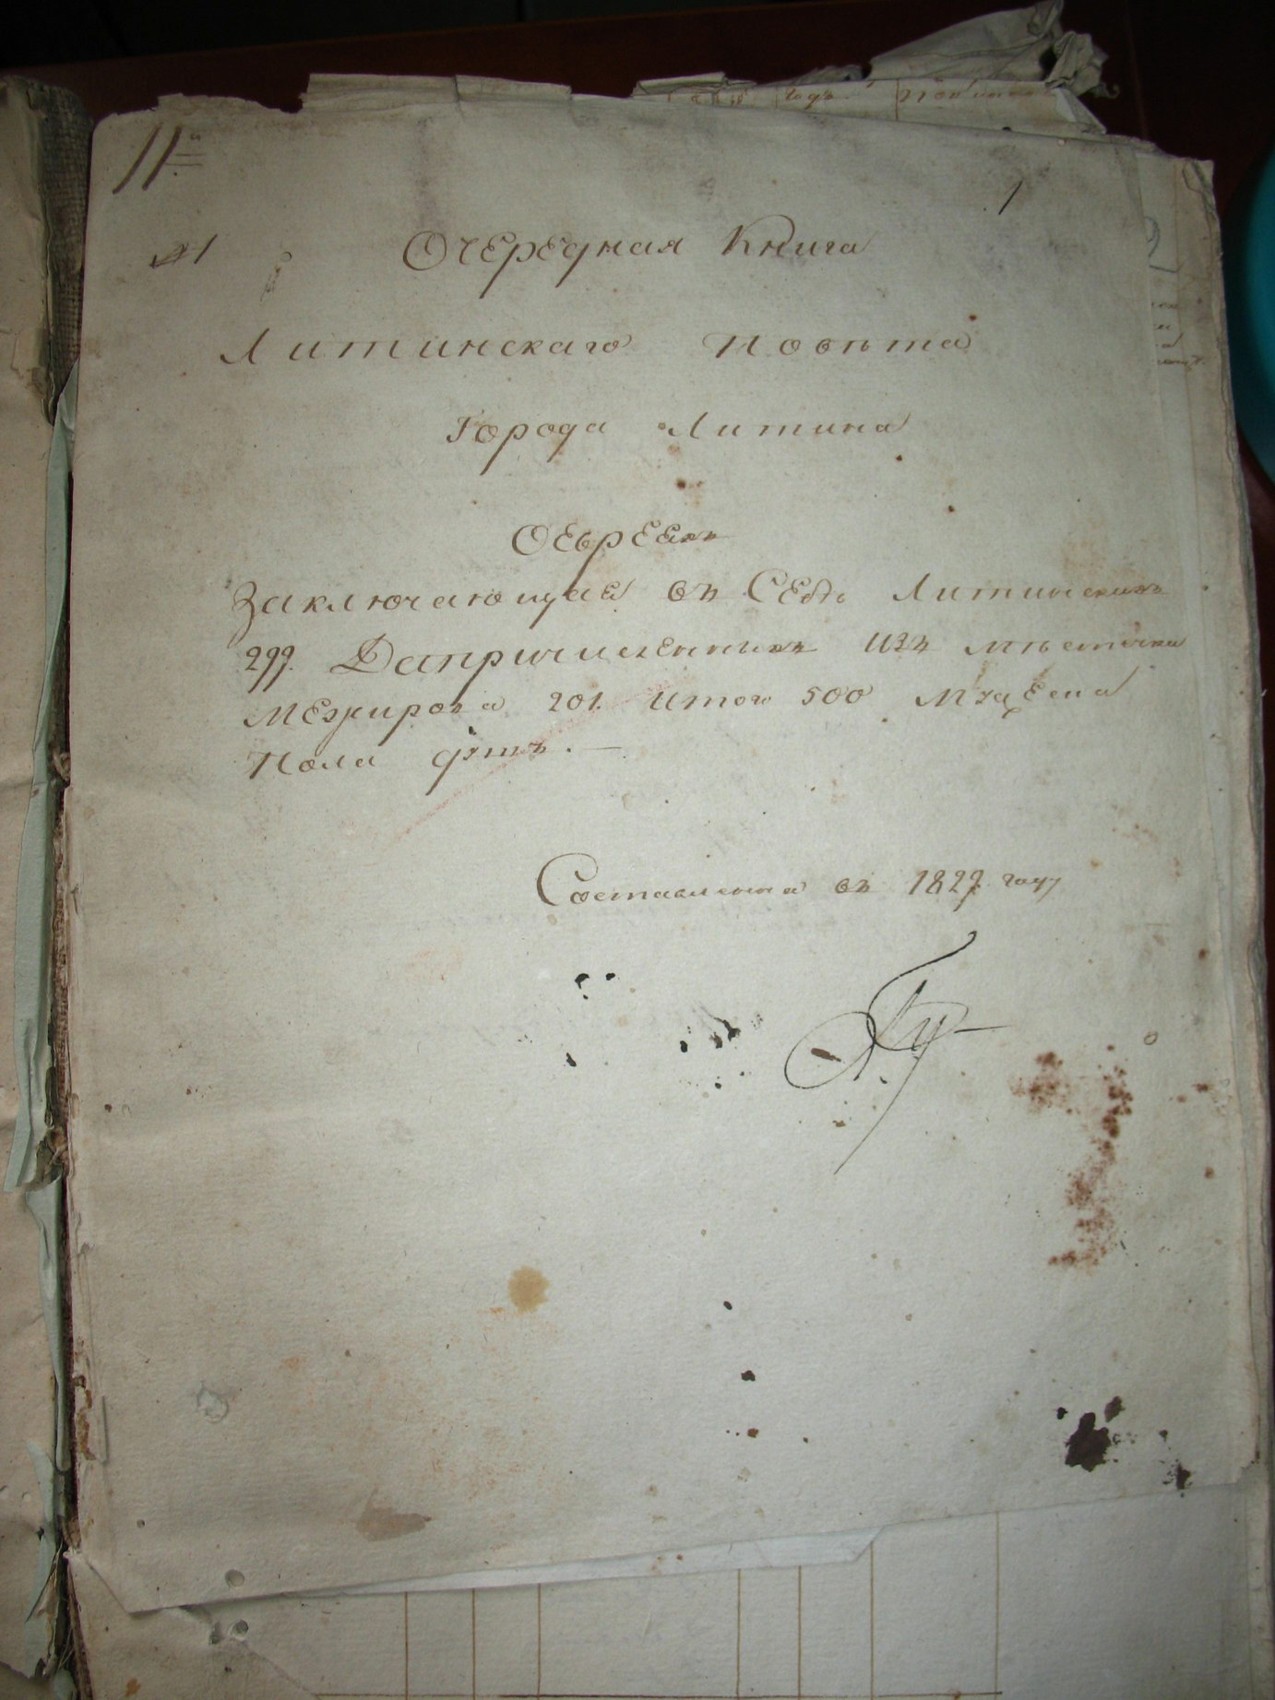 11ᵃ
1
№1
Очередная Книга
Литинскаго Повѣта
Города Литина
О Евреяхъ
Заключающая въ Себѣ Литинскихъ
299. Да причисленныхъ изъ мѣстечка
Межирова 201. Итого 500 Мужеска
Пола душъ. —
Составлена въ 1829. году